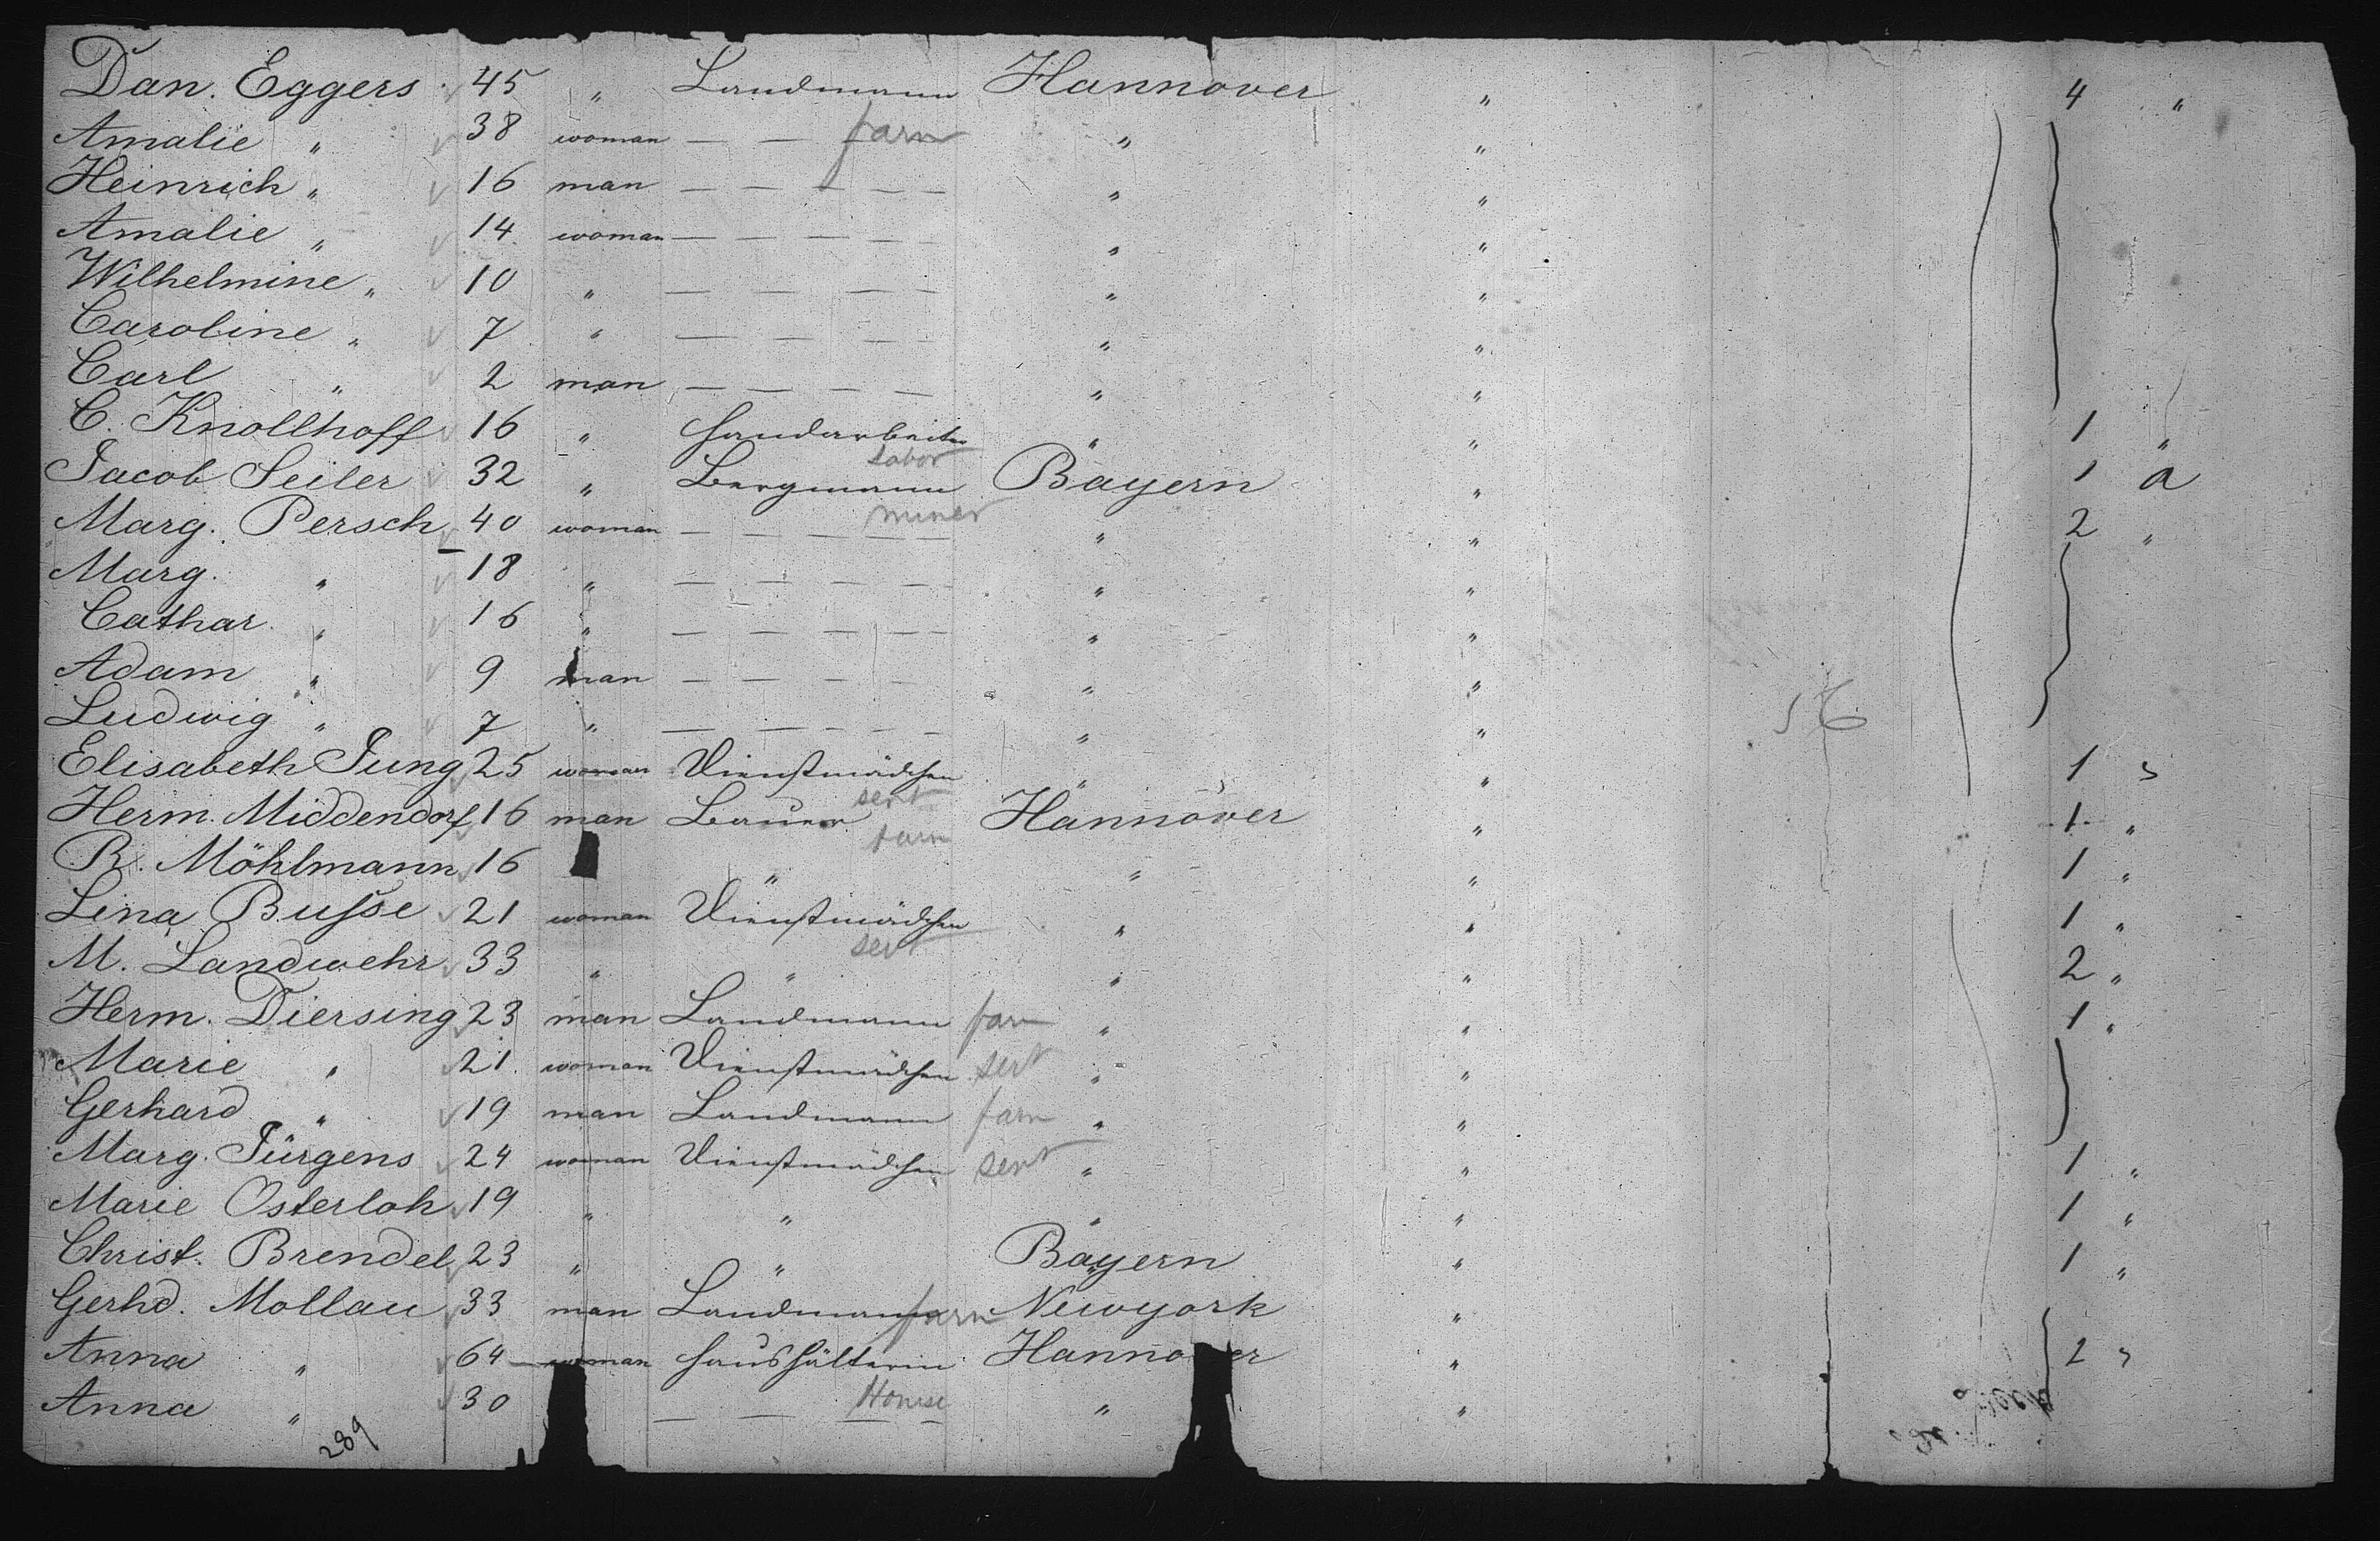 Dan. Eggers 45 " Landmann Hannover " 4 "
Amalie " 38 woman — — farm " "
Heinrich " 16 man — — — — — " "
Amalie " 14 woman — — — — — " "
Wilhelmine " 10 " — — — — " "
Caroline " 7 " — — — — " "
Carl " 2 man — — — — " "
C. Knollhoff 16 " Handarbeiter " " 1 "
labor
Jacob Seiler 32 " Bergmann Bayern " 1 a
miner
Marg. Persch 40 woman — — — — — " " 2 "
Marg. " 18 " — — — — — " "
Cathar. " 16 " — — — — — " "
Adam " 9 man — — — — " "
Ludwig " 7 " — — — — — " "
Elisabeth Jung 25 woman Dienstmädchen " " 1 "
sert
Herm. Middendorf 16 man Bauer Hannover " 1 "
farm
R. Möhlmann 16 " " " 1 "
Lina Busse 21 woman Dienstmädchen " " 1 "
sert
M. Landwehr 33 " " " " 2 "
Herm. Diersing 23 man Landmann farm " " 1 "
Marie " 21 woman Dienstmädchen sert " "
Gerhard " 19 man Landmann farm " "
Marg. Jürgens 24 woman Dienstmädchen sert " " 1 "
Marie Osterloh 19 " " " " 1 "
Christ. Brendel 23 " " Bayern " 1 "
Gerhd. Mollau 33 man Landmann farm Newyork "
Anna " 64 woman Haushälterin Hannover " 2 "
House
Anna " 30 — — — — " "
289